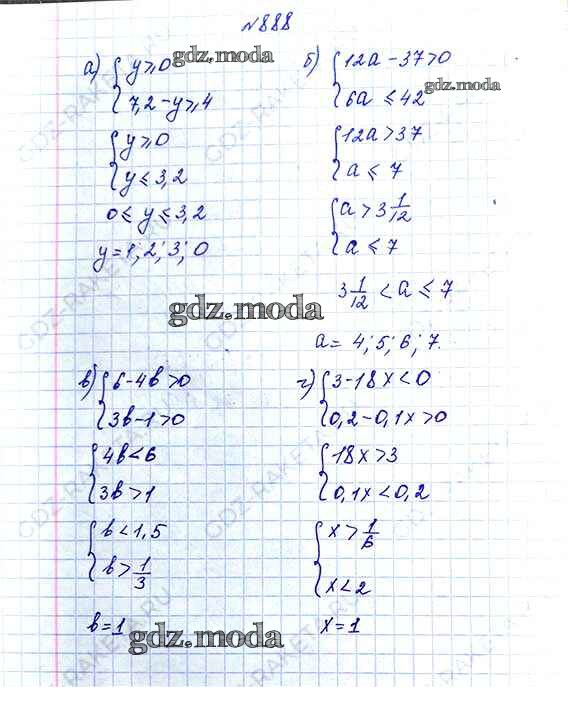 №888
а) { y ⩾ 0
7,2 - y ⩾ 4
{ y ⩾ 0
y ⩽ 3,2
0 ⩽ y ⩽ 3,2
y = 1; 2; 3; 0
б) { 12a - 37 > 0
6a ⩽ 42
{ 12a > 37
a ⩽ 7
{ a > 3 1/12
a ⩽ 7
3 1/12 < a ⩽ 7
a = 4; 5; 6; 7.
в) { 6 - 4b > 0
3b - 1 > 0
{ 4b < 6
3b > 1
{ b < 1,5
b > 1/3
b = 1
г) { 3 - 18x < 0
0,2 - 0,1x > 0
{ 18x > 3
0,1x < 0,2
{ x > 1/6
x < 2
x = 1
gdz.moda
gdz.moda
gdz.moda
gdz.moda
GDZ-RAKETA.RU
GDZ-RAKETA.RU
GDZ-RAKETA.RU
GDZ-RAKETA.RU